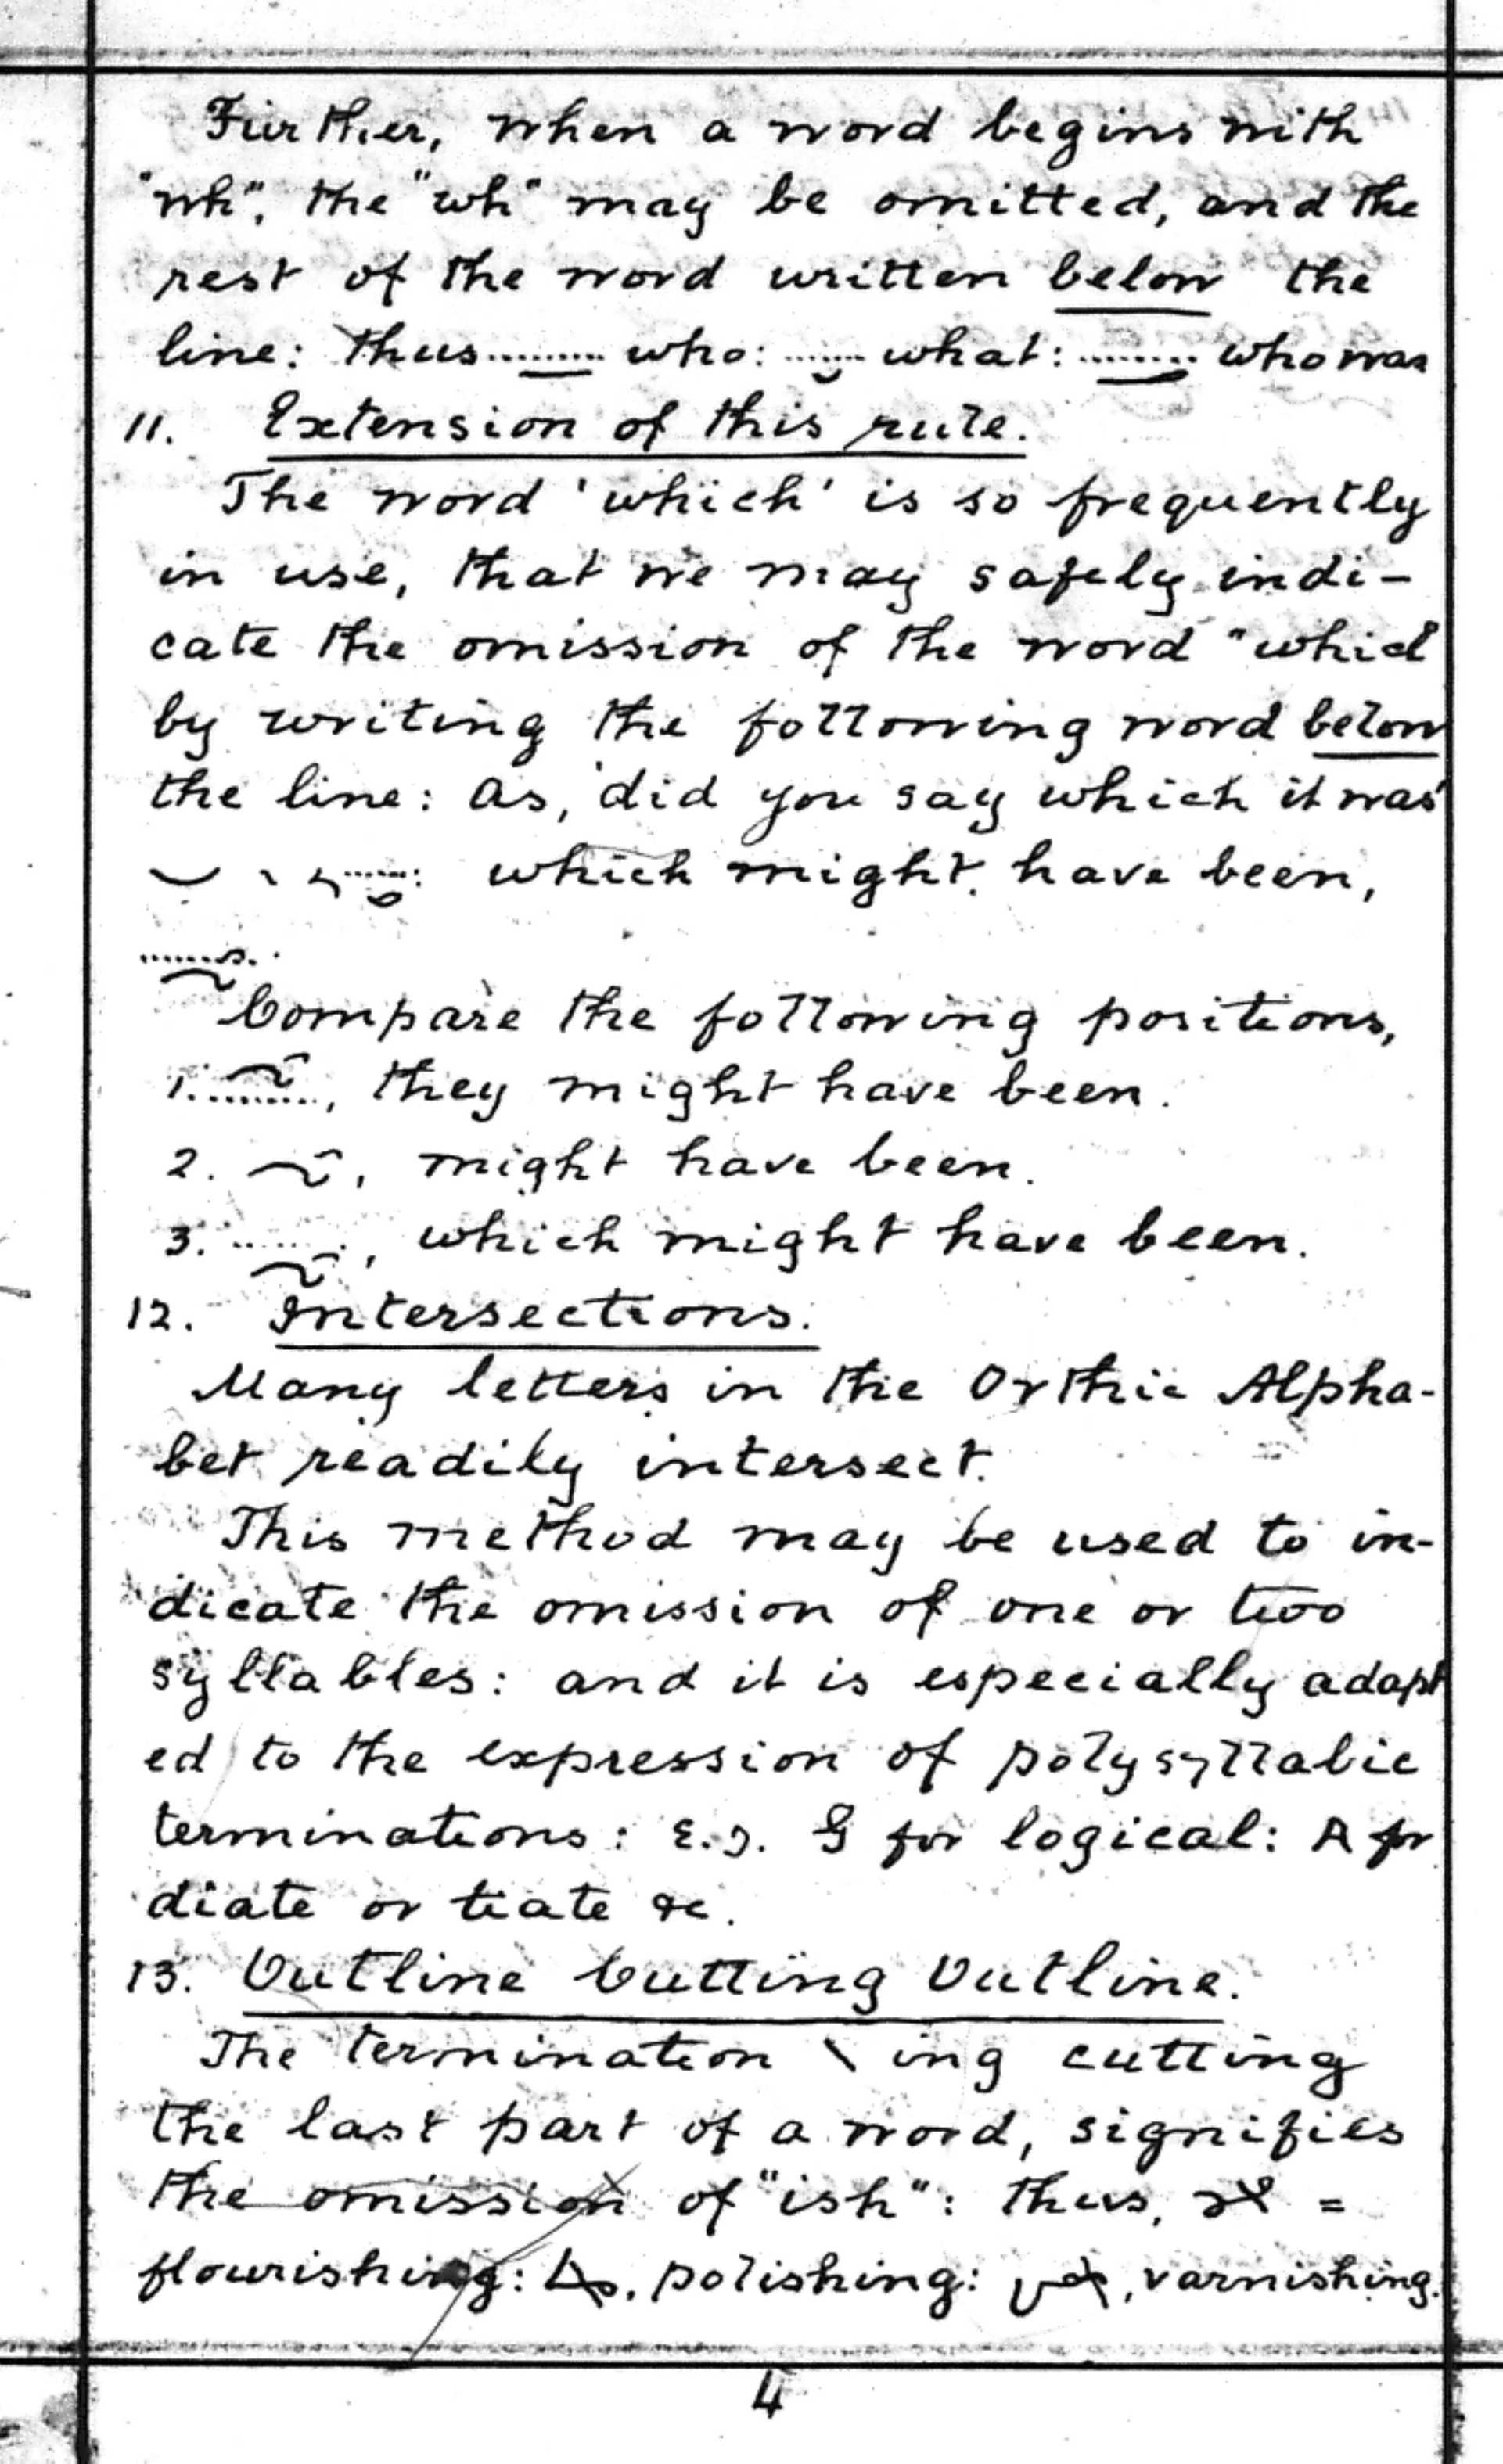 Further, when a word begins with
"wh", the "wh" may be omitted, and the
rest of the word written below the
line: thus who: what: who was
11. Extension of this rule.
The word 'which' is so frequently
in use, that we may safely indi-
cate the omission of the word "which"
by writing the following word below
the line: as, 'did you say which it was'
: which might have been,
Compare the following positions,
1. , they might have been.
2. , might have been.
3. , which might have been.
12. Intersections.
Many letters in the Orthic Alpha-
bet readily intersect.
This method may be used to in-
dicate the omission of one or two
syllables: and it is especially adapt
ed to the expression of polysyllabic
terminations: E.g. for logical: for
diate or tiate &c.
13. Outline Cutting Outline.
The termination \ ing cutting
the last part of a word, signifies
the omission of "ish": thus, =
flourishing: . polishing: , varnishing.
4